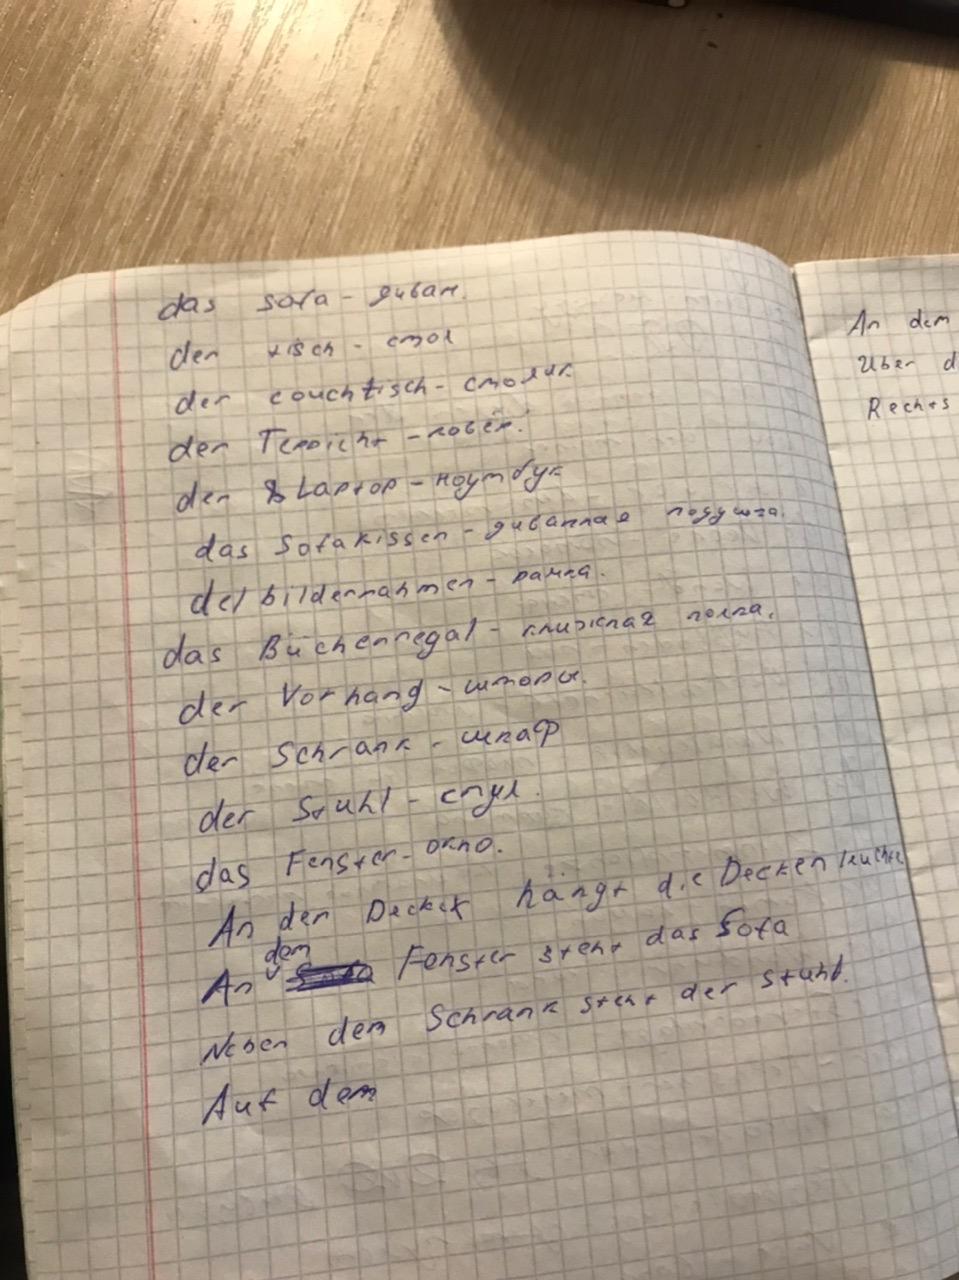 das sofa - диван.
der tisch - стол
der couchtisch - столик
der Teppicht - ковёр.
der Laptop - ноутбук
das Sofakissen - диванная подушка.
der bildernahmen - рамка.
das Büchenregal - книжная полка.
der Vorhang - шторы.
der Schrank - шкаф
der Stuhl - стул.
das Fenster - окно.
An der Decke hängt die Deckenleuchte
An dem Fenster steht das Sofa
Neben dem Schrank steht der stuhl.
Auf dem
An dem
Über d
Rechts